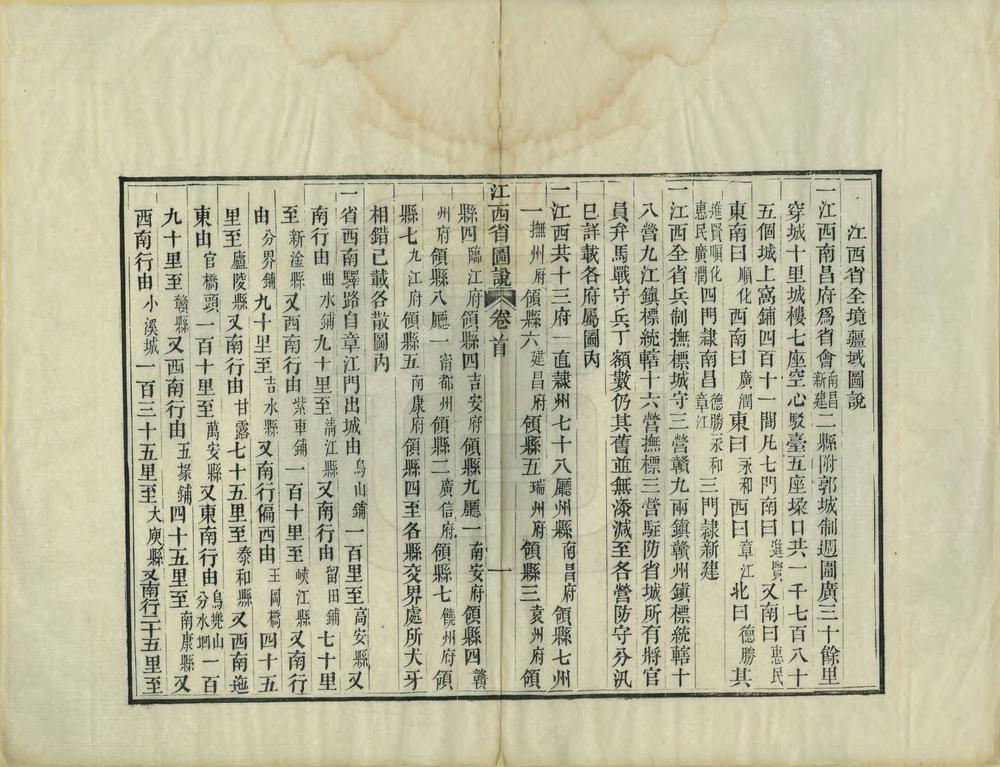 江西省全境疆域圖說
一江西南昌府爲省會南昌新建二縣附郭城制週圍廣三十餘里
穿城十里城樓七座空心駁臺五座垛口共一千七百八十
五個城上窩鋪四百十一間凡七門南曰進賢又南曰惠民
東南曰順化西南曰廣潤東曰永和西曰章江北曰德勝其
進賢順化惠民廣潤四門隸南昌德勝永和章江三門隸新建
一江西全省兵制撫標城守三營贛九兩鎮贛州鎮標統轄十
八營九江鎮標統轄十六營撫標三營駐防省城所有將官
員弁馬戰守兵丁額數仍其舊並無添減至各營防守分汛
已詳載各府屬圖內
一江西共十三府一直隸州七十八廳州縣南昌府領縣七州
一撫州府領縣六建昌府領縣五瑞州府領縣三袁州府領
江西省圖說 卷首 一
縣四臨江府領縣四吉安府領縣九廳一南安府領縣四贛
州府領縣八廳一甯都州領縣二廣信府領縣七饒州府領
縣七九江府領縣五南康府領縣四至各縣交界處所犬牙
相錯已載各散圖內
一省西南驛路自章江門出城由烏山鋪一百里至高安縣又
南行由曲水鋪九十里至清江縣又南行由留田鋪七十里
至新淦縣又西南行由紫車鋪一百十里至峽江縣又南行
由分界鋪九十里至吉水縣又南行偏西由王岡橋四十五
里至廬陵縣又南行由甘露七十五里至泰和縣又西南迤
東由官橋頭一百十里至萬安縣又東南行由烏兠山分水坳一百
九十里至贛縣又西南行由五塚鋪四十五里至南康縣又
西南行由小溪城一百三十五里至大庾縣又南行二十五里至